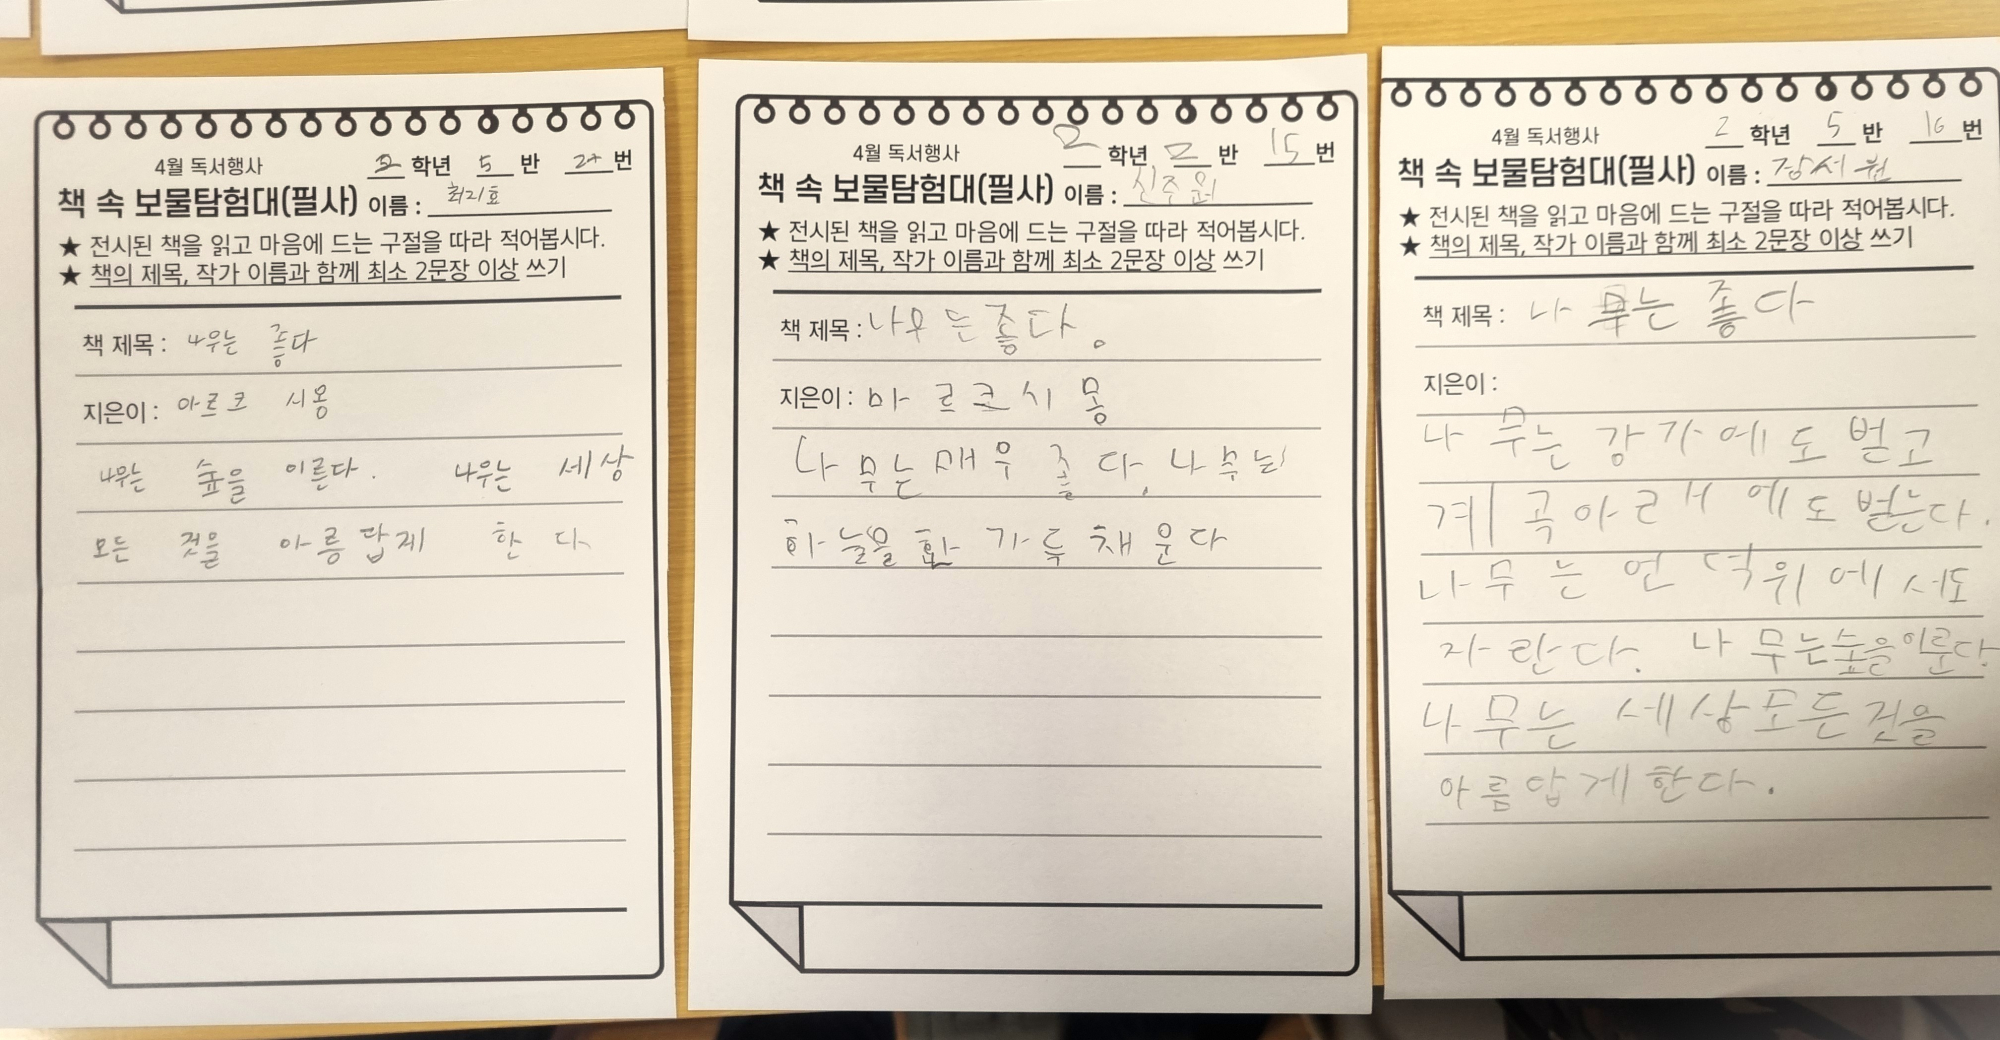 4월 독서행사
2 학년 5 반 27 번
책 속 보물탐험대(필사) 이름 :
★ 전시된 책을 읽고 마음에 드는 구절을 따라 적어봅시다.
★ 책의 제목, 작가 이름과 함께 최소 2문장 이상 쓰기
책 제목 : 나무는 좋다
지은이 : 마르크 시몽
나무는 숲을 이룬다. 나무는 세상
모든 것을 아름답게 한다
4월 독서행사
2 학년 2 반 15 번
책 속 보물탐험대(필사) 이름 : 신주원
★ 전시된 책을 읽고 마음에 드는 구절을 따라 적어봅시다.
★ 책의 제목, 작가 이름과 함께 최소 2문장 이상 쓰기
책 제목 : 나무는좋다.
지은이 : 마르크시몽
나무는매우 좋다, 나무는
하늘을 한가득 채운다
4월 독서행사
2 학년 5 반 16 번
책 속 보물탐험대(필사) 이름 : 장서원
★ 전시된 책을 읽고 마음에 드는 구절을 따라 적어봅시다.
★ 책의 제목, 작가 이름과 함께 최소 2문장 이상 쓰기
책 제목 : 나무는 좋다
지은이 :
나무는 강가에도 벋고
계곡아래에도 벋는다.
나무는 언덕위에서도
자란다. 나무는숲을이룬다.
나무는 세상모든것을
아름답게한다.